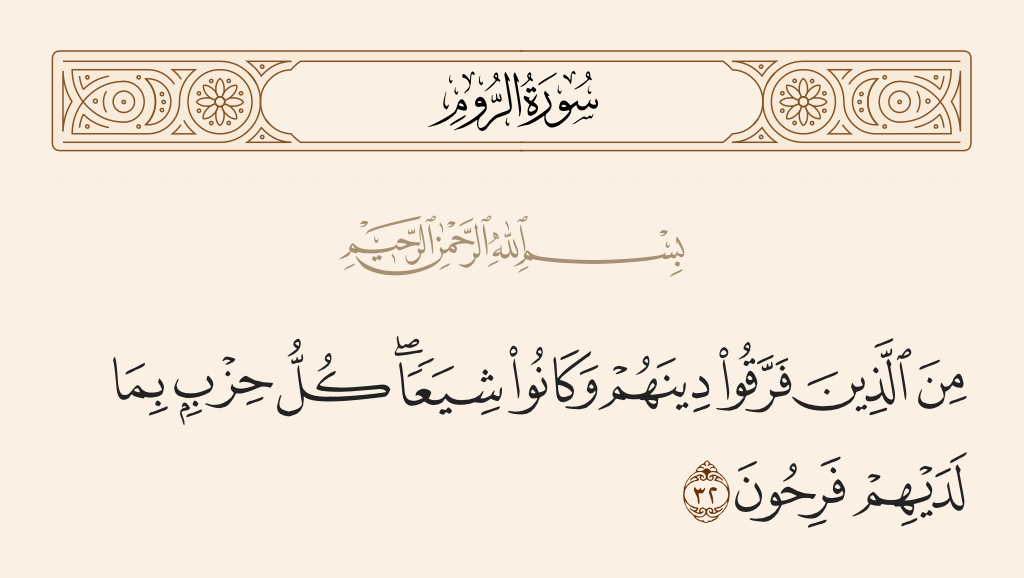 سُورَةُ الرُّومِ
بِسْمِ ٱللَّهِ ٱلرَّحْمَٰنِ ٱلرَّحِيمِ
مِنَ ٱلَّذِينَ فَرَّقُوا۟ دِينَهُمْ وَكَانُوا۟ شِيَعًا ۖ كُلُّ حِزْبٍۭ بِمَا
لَدَيْهِمْ فَرِحُونَ ٣٢